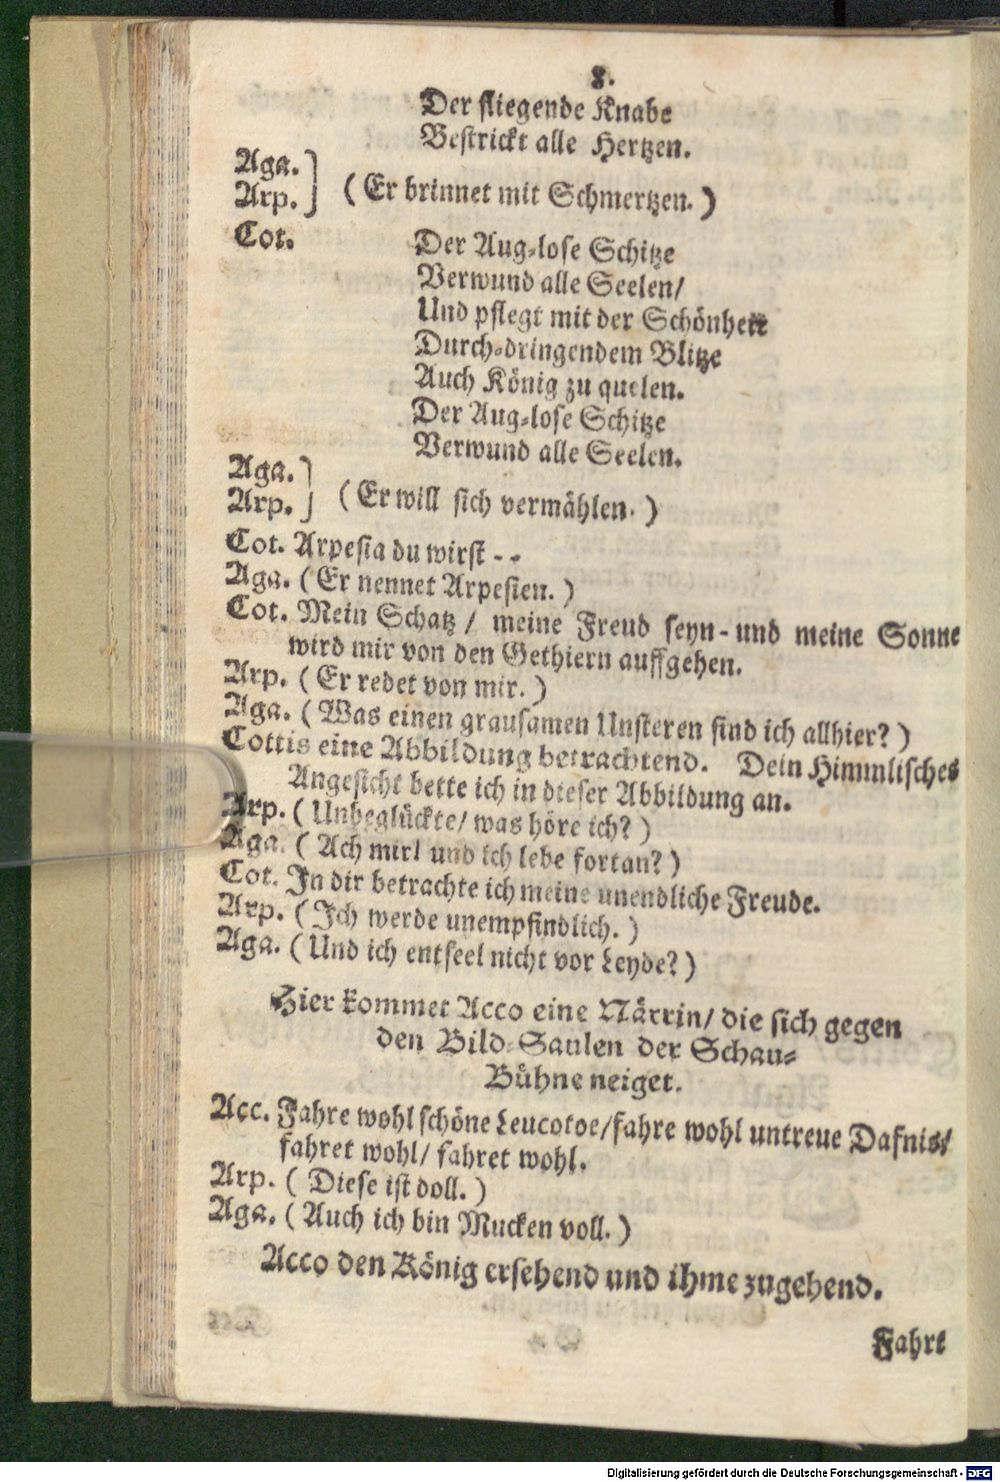 8.
Der fliegende Knabe
Bestrickt alle Hertzen.
Aga.
Arp. } ( Er brinnet mit Schmertzen. )
Cot. Der Aug-lose Schitze
Verwund alle Seelen/
Und pflegt mit der Schönheit
Durch-dringendem Blitze
Auch König zu quelen.
Der Aug-lose Schitze
Verwund alle Seelen.
Aga.
Arp. } ( Er will sich vermählen. )
Cot. Arpesia du wirst - -
Aga. ( Er nennet Arpesien. )
Cot. Mein Schatz / meine Freud seyn - und meine Sonne
wird mir von den Gethiern auffgehen.
Arp. ( Er redet von mir. )
Aga. ( Was einen grausamen Unsteren find ich allhier? )
Cottis eine Abbildung betrachtend. Dein Himmlisches
Angesicht bette ich in dieser Abbildung an.
Arp. ( Unbeglückte/ was höre ich? )
Aga. ( Ach mir! und ich lebe fortan? )
Cot. In dir betrachte ich meine unendliche Freude.
Arp. ( Ich werde unempfindlich. )
Aga. ( Und ich entseel nicht vor Leyde? )
Hier kommet Acco eine Närrin/ die sich gegen
den Bild-Saulen der Schau-
Bühne neiget.
Acc. Fahre wohl schöne Leucotoe/fahre wohl untreue Dafnis/
fahret wohl/ fahret wohl.
Arp. ( Diese ist doll. )
Aga. ( Auch ich bin Mucken voll. )
Acco den König ersehend und ihme zugehend.
Fahre
Digitalisierung gefördert durch die Deutsche Forschungsgemeinschaft - DFG